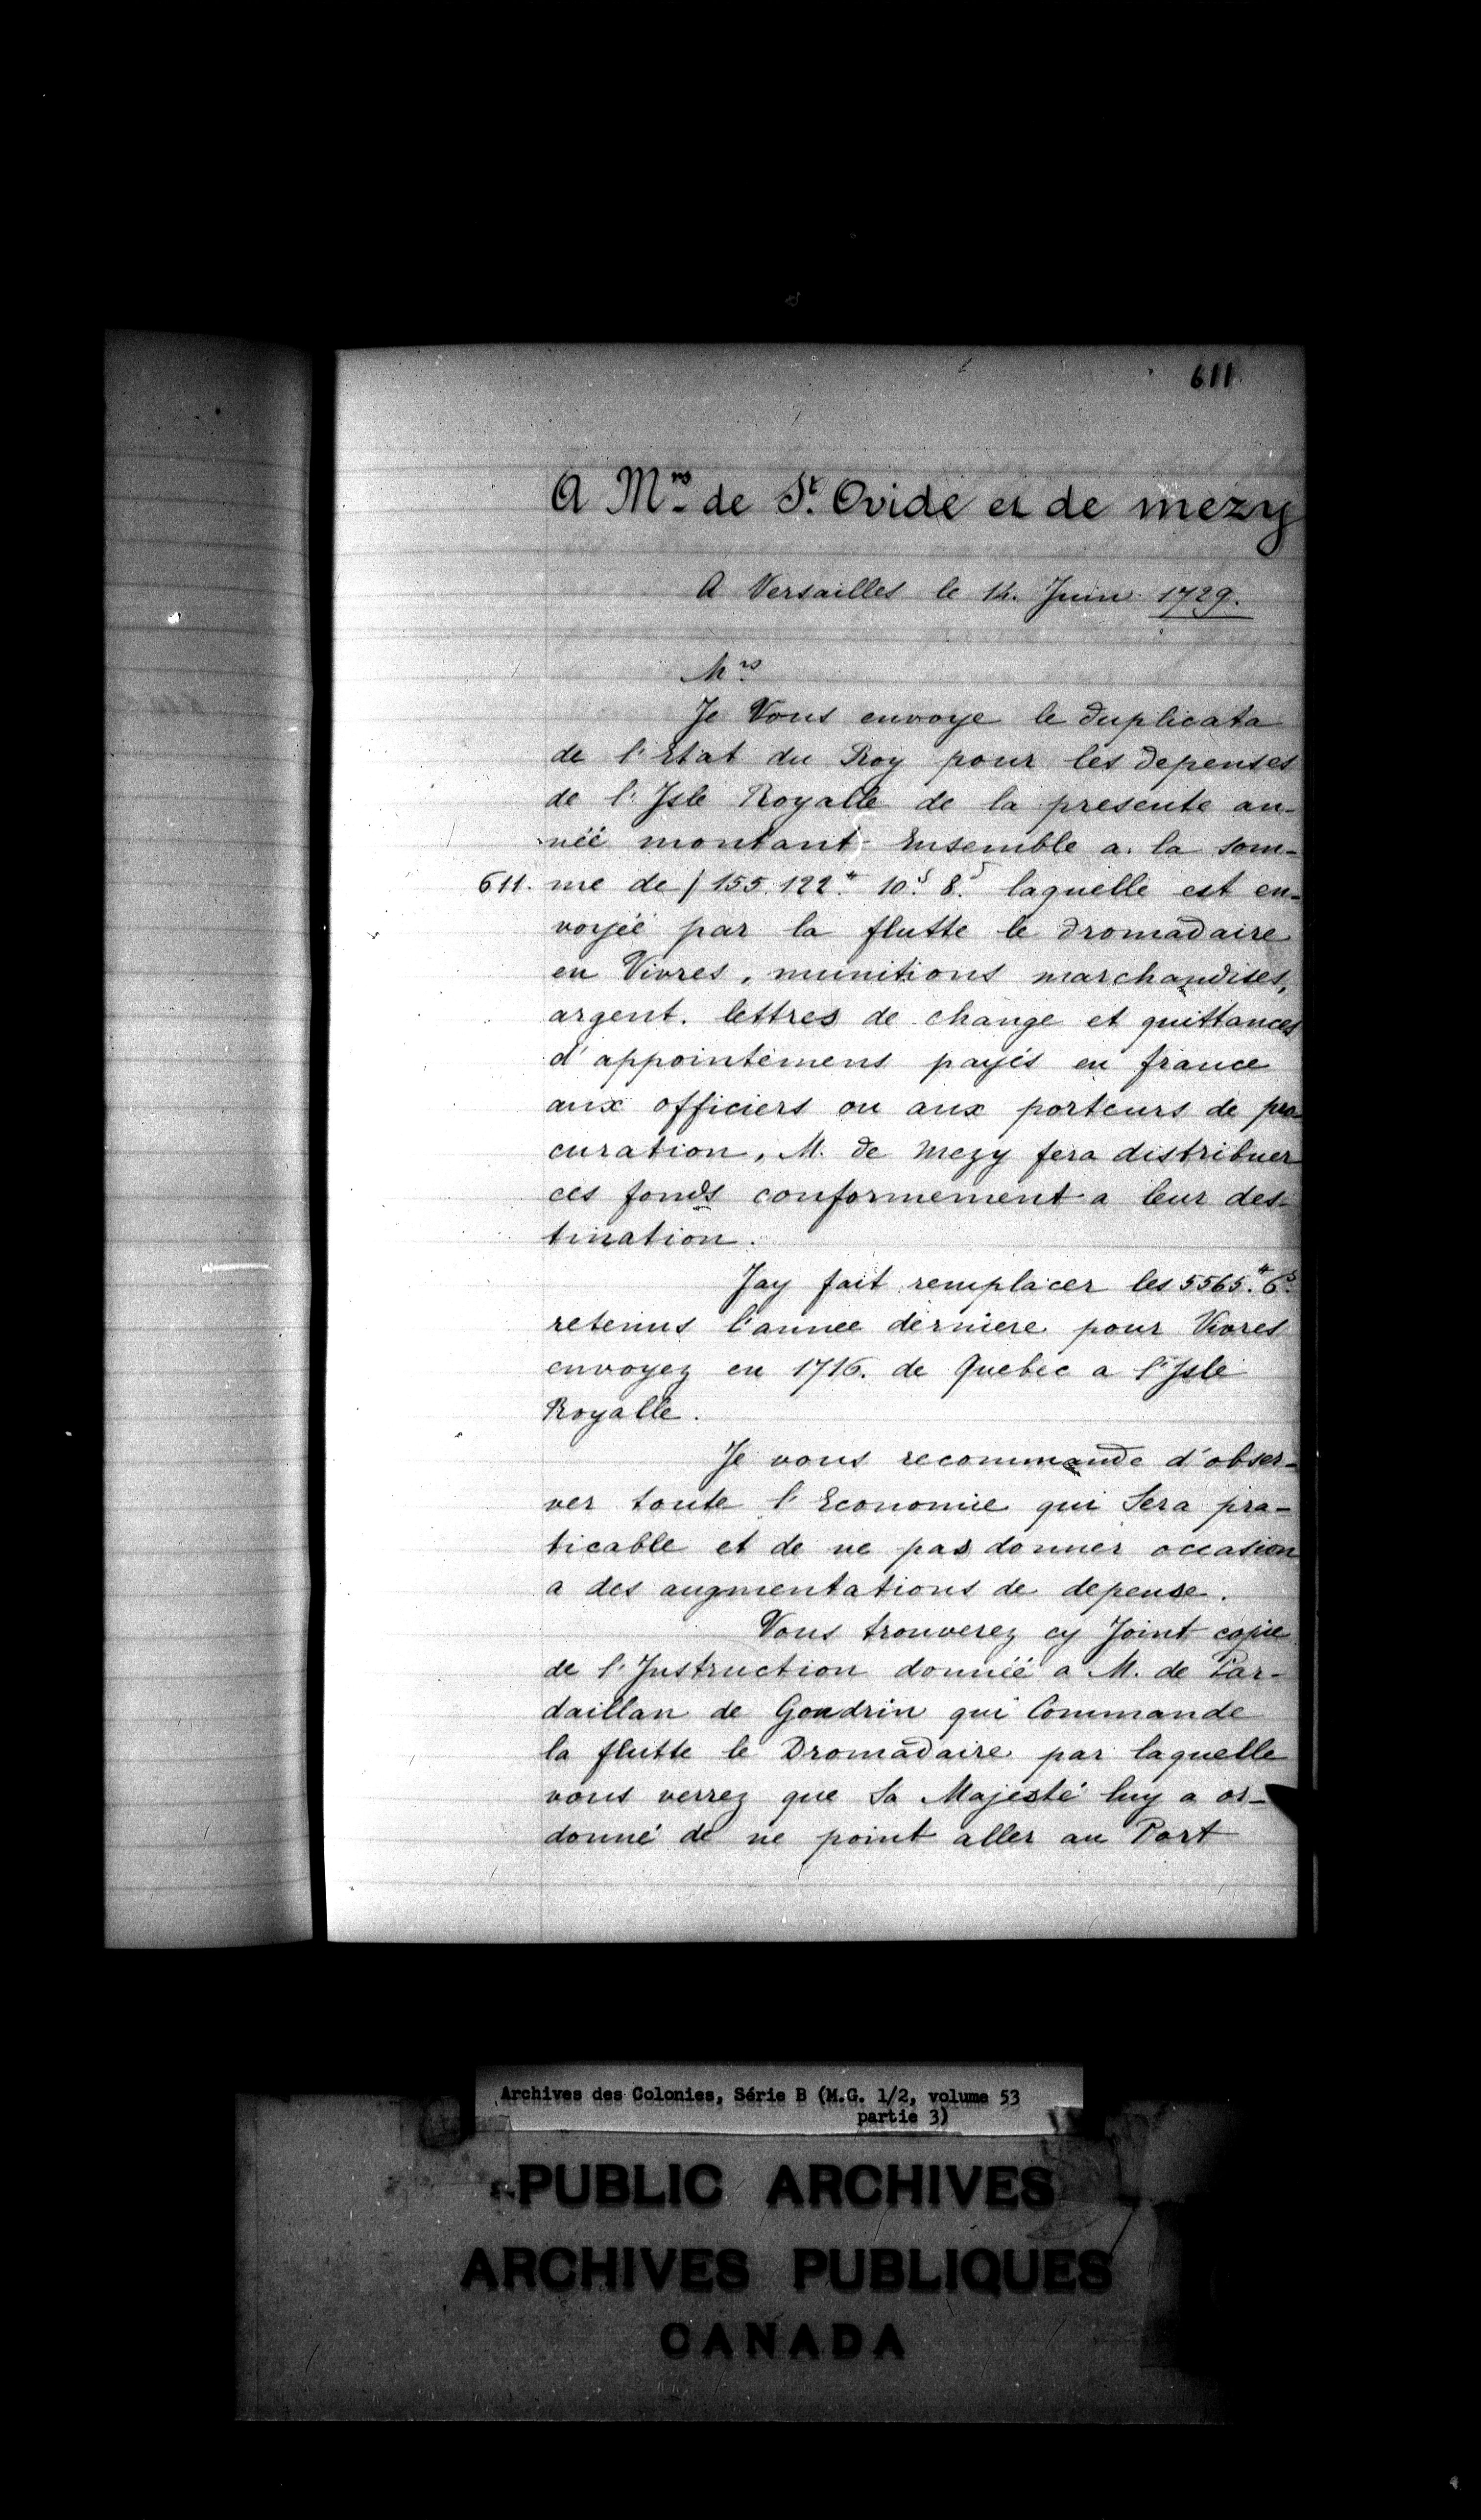 611
A Mrs de St. Ovide et de mezy
A Versailles le 14. Juin 1729.
Mrs
Je Vous envoye le duplicata
de l'Etat du Roy pour les depenses
de l'Isle Royalle de la presente an-
néé montant Ensemble a la som-
611. me de / 155.122# 10s 8d laquelle est en-
voyéé par la flutte le dromadaire
en Vivres, munitions marchandises,
argent. lettres de change et quittances
d'appointemens payés en france
aux officiers ou aux porteurs de pro
curation, M. de Mezy fera distribuer
ces fonds conformement a leur des-
tination.
Jay fait remplacer les 5565# 6s
retenus l'année derniere pour Vivres
envoyez en 1716. de Quebec a l'Isle
Royalle.
Je vous recommande d'obser-
ver toute l'Economie qui Sera pra-
ticable et de ne pas donner occasion
a des augmentations de depense.
Vous trouverez cy Joint copie
de l'Instruction donnéé a M. de Par-
daillan de Gondrin qui Commande
la flutte le Dromadaire par laquelle
vous verrez que Sa Majesté luy a or-
donné de ne point aller au Port
Archives des Colonies, Série B (M.G. 1/2, volume 53
partie 3)
PUBLIC ARCHIVES
ARCHIVES PUBLIQUES
CANADA